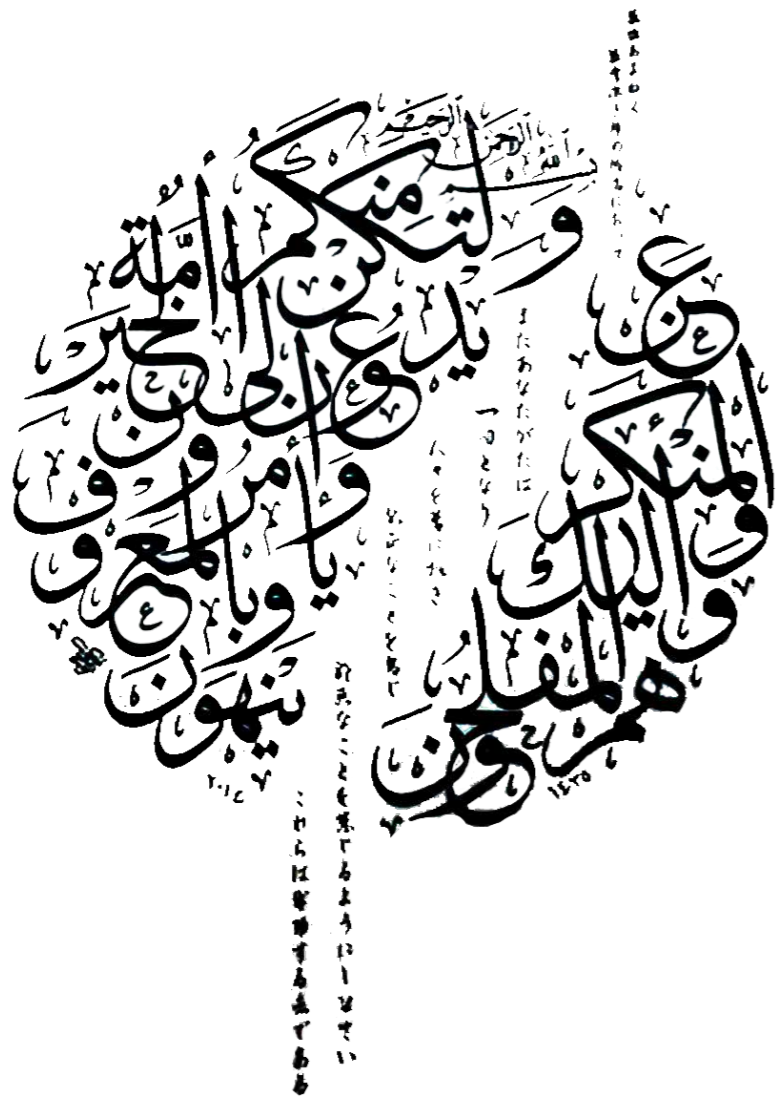 بسم الله الرحمن الرحيم
ولتكن منكم أمة
يدعون إلى الخير
ويأمرون بالمعروف
وينهون
عن
المنكر
وأولئك
هم المفلحون
٢٠١٤
١٤٣٥
またあなたがたは
一団となり
人々を善に招き
なことを命じ
邪悪なことを禁ずるようにしなさい
これらは成功する者である